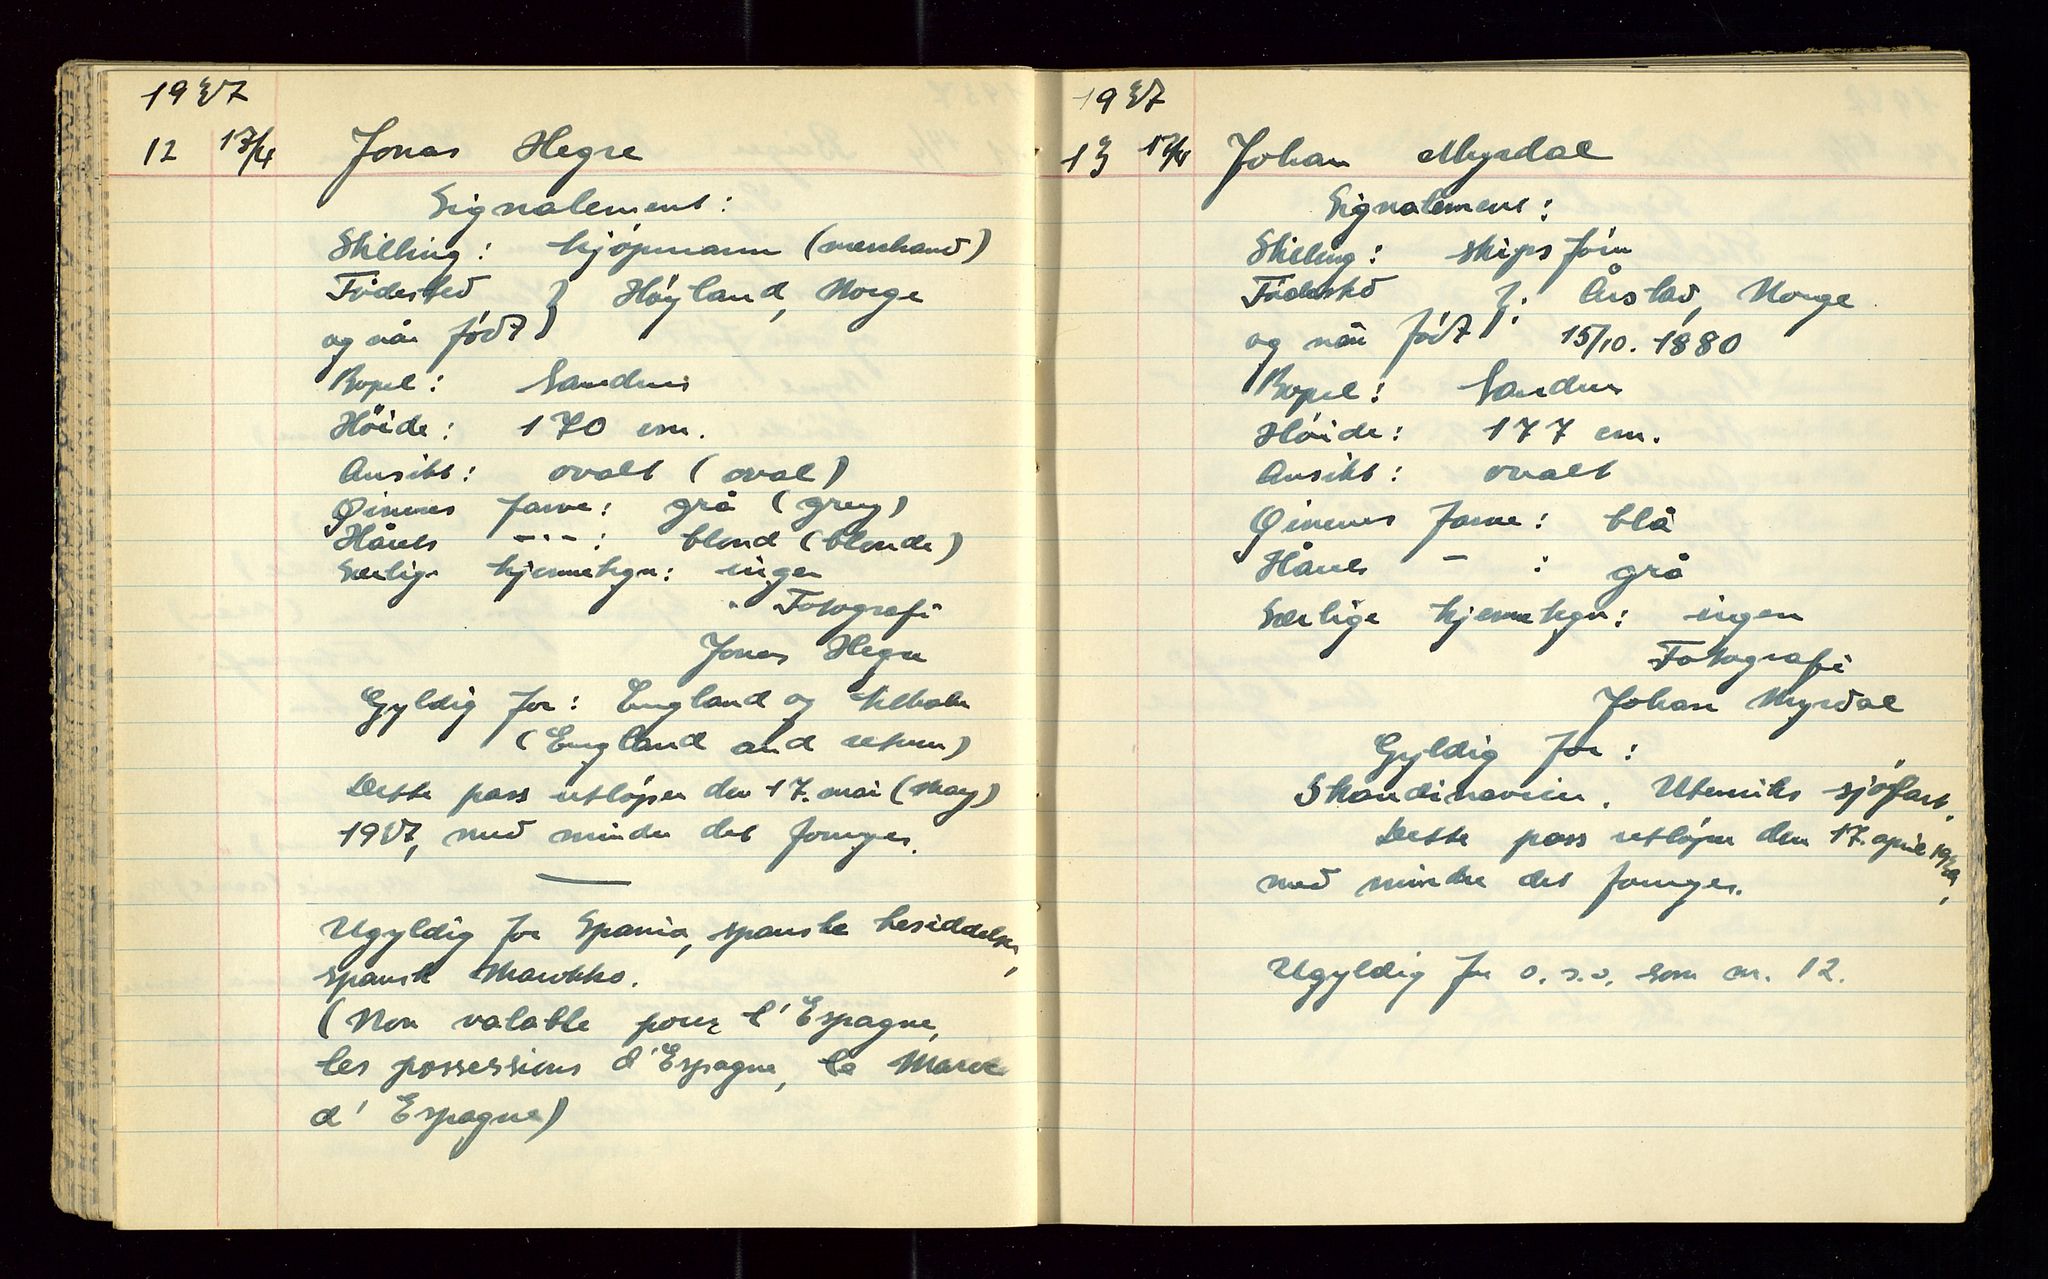 1937
12 17/4 Jonas Hegre
Signalement:
Stilling: kjöpmann (merchand)
Födested } Höyland, Norge
og når födt }
Bopel: Sandnes
Höide: 170 cm.
Ansikt: ovalt (oval)
Øinenes farve: grå (grey)
Hårets -·-: blond (blonde)
Særlige kjennetegn: ingen
Fotografi
Jonas Hegre
Gyldig for: England og tilbake
(England and return)
Dette pass utlöper den 17. mai (May)
1937, med mindre det fornyes.
Ugyldig for Spania, spanske besiddelser,
spansk Marokko.
(Non valable pour l'Espagne,
les possessions d'Espagne, le Maroc
d'Espagne)
1937
13 17/4 Johan Myrdal
Signalement:
Stilling: skipsförer
Födested }: Årstad, Norge
og når födt } 15/10. 1880
Bopel: Sandnes
Höide: 177 cm.
Ansikt: ovalt
Øinenes farve: blå
Hårets - : grå
Særlige kjennetegn: ingen
Fotografi
Johan Myrdal
Gyldig for:
Skandinavien. Utenriks sjöfart.
Dette pass utlöper den 17. april 1939,
med mindre det fornyes.
Ugyldig for o.s.v. som nr. 12.